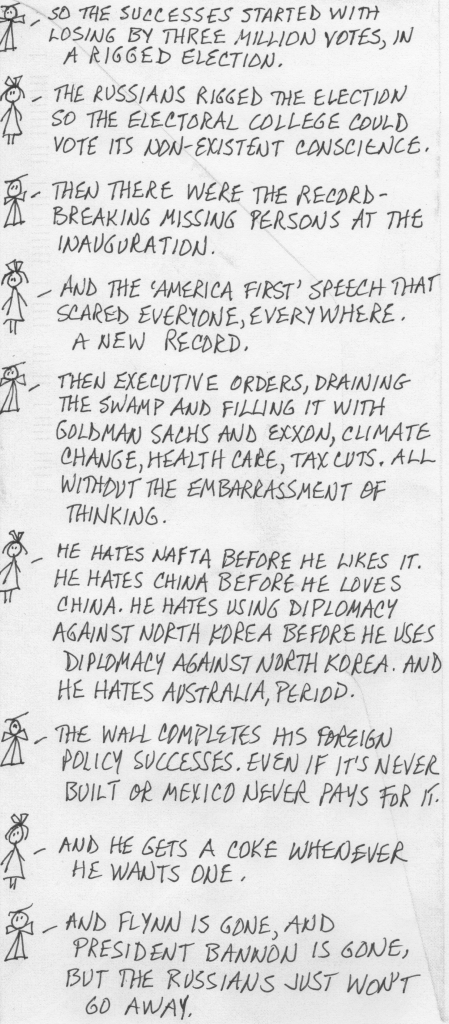 SO THE SUCCESSES STARTED WITH
LOSING BY THREE MILLION VOTES, IN
A RIGGED ELECTION.
THE RUSSIANS RIGGED THE ELECTION
SO THE ELECTORAL COLLEGE COULD
VOTE ITS NON-EXISTENT CONSCIENCE.
THEN THERE WERE THE RECORD-
BREAKING MISSING PERSONS AT THE
INAUGURATION.
AND THE 'AMERICA FIRST' SPEECH THAT
SCARED EVERYONE, EVERYWHERE.
A NEW RECORD.
THEN EXECUTIVE ORDERS, DRAINING
THE SWAMP AND FILLING IT WITH
GOLDMAN SACHS AND EXXON, CLIMATE
CHANGE, HEALTH CARE, TAX CUTS. ALL
WITHOUT THE EMBARRASSMENT OF
THINKING.
HE HATES NAFTA BEFORE HE LIKES IT.
HE HATES CHINA BEFORE HE LOVES
CHINA. HE HATES USING DIPLOMACY
AGAINST NORTH KOREA BEFORE HE USES
DIPLOMACY AGAINST NORTH KOREA. AND
HE HATES AUSTRALIA, PERIOD.
THE WALL COMPLETES HIS FOREIGN
POLICY SUCCESSES. EVEN IF IT'S NEVER
BUILT OR MEXICO NEVER PAYS FOR IT.
AND HE GETS A COKE WHENEVER
HE WANTS ONE.
AND FLYNN IS GONE, AND
PRESIDENT BANNON IS GONE,
BUT THE RUSSIANS JUST WON'T
GO AWAY.